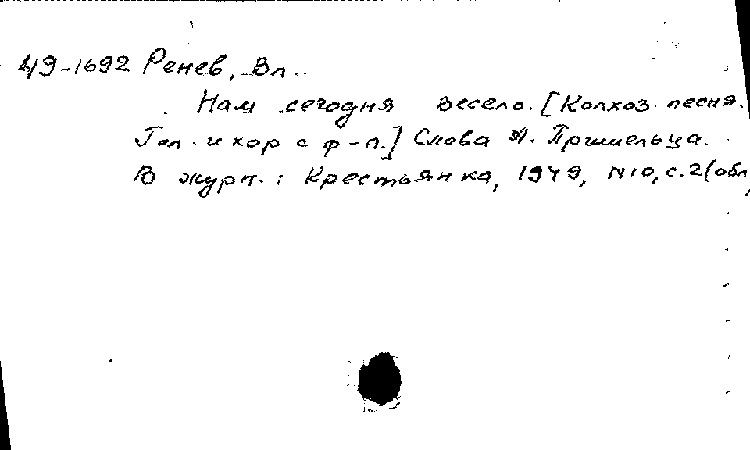 49-1692 Ренев, Вл.
Нам сегодня весело. [Колхоз. песня.
Гол. и хор с ф-п.] Слова А. Пришельца.
В журн.: Крестьянка, 1949, N10, с.2(обл